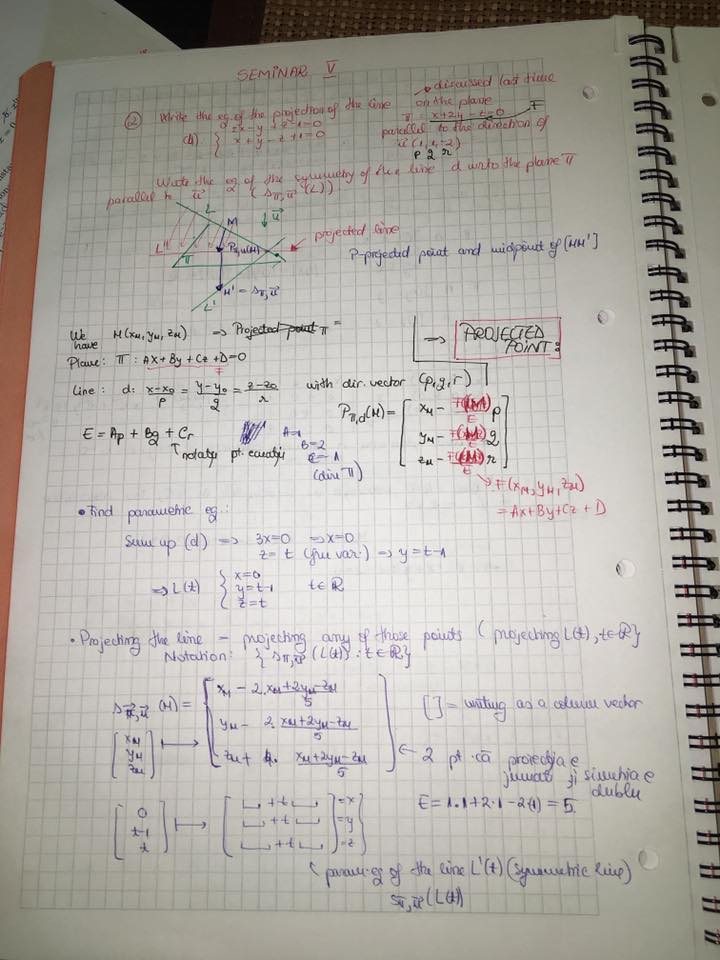 SEMINAR V
② Write the eq. of the projection of the line
(d) { 2x - y + z - 1 = 0
x + y - z + 1 = 0
→ discussed last time
on the plane
π: x + 2y - z = 0 F
parallel to the direction of
u⃗ (1, 1, -2)
p q r
Write the eq of the symmetry of the line d unto the plane π
parallel to u⃗ (S_{π,u⃗} (L))
L
M
↓ u⃗
L"
P_{π,u}(M)
projected line
π
M' = S_{π,u⃗}
L'
P-projected point and midpoint of [MM']
We have M(x_M, y_M, z_M) ⇒ Projected point π =
→ PROJECTED POINT:
Plane: π: Ax + By + Cz + D = 0
F
Line: d: (x-x_0)/p = (y-y_0)/q = (z-z_0)/r with dir. vector (p, q, r)
P_{π,d}(M) = [ x_M - F(M)/E p
y_M - F(M)/E q
z_M - F(M)/E r ]
E = Ap + Bq + Cr
A=1
B=2
C=-1
(din π)
↑ notație pt. ecuației
→ F(x_M, y_M, z_M)
= Ax + By + Cz + D
• Find parametric eq.:
Sum up (d) ⇒ 3x=0 ⇒ x=0
z = t (free var.) ⇒ y = t-1
⇒ L(t) { x=0
y=t-1 t∈ℝ
z=t
• Projecting the line - projecting any of those points (projecting L(t), t∈ℝ}
Notation: {S_{π,u⃗} (L(t)) : t∈ℝ}
S_{π,u⃗} (M) = { x_M - 2. (x_M+2y_M-z_M)/5
y_M - 2. (x_M+2y_M-z_M)/5
z_M + 4. (x_M+2y_M-z_M)/5 }
[x_M
y_M
z_M] ↦
[ ] = writing as a column vector
← 2 pt. că proiecția e
jumate și simetria e
dublu
E = 1·1+2·1-2(-1) = 5.
[0
t-1
t] ↦ [ ⎵ + t ⎵ ] = x
⎵ + t ⎵ = y
⎵ + t ⎵ = z
param. eq of the line L'(t) (symmetric line)
S_{π,u⃗} (L(t))